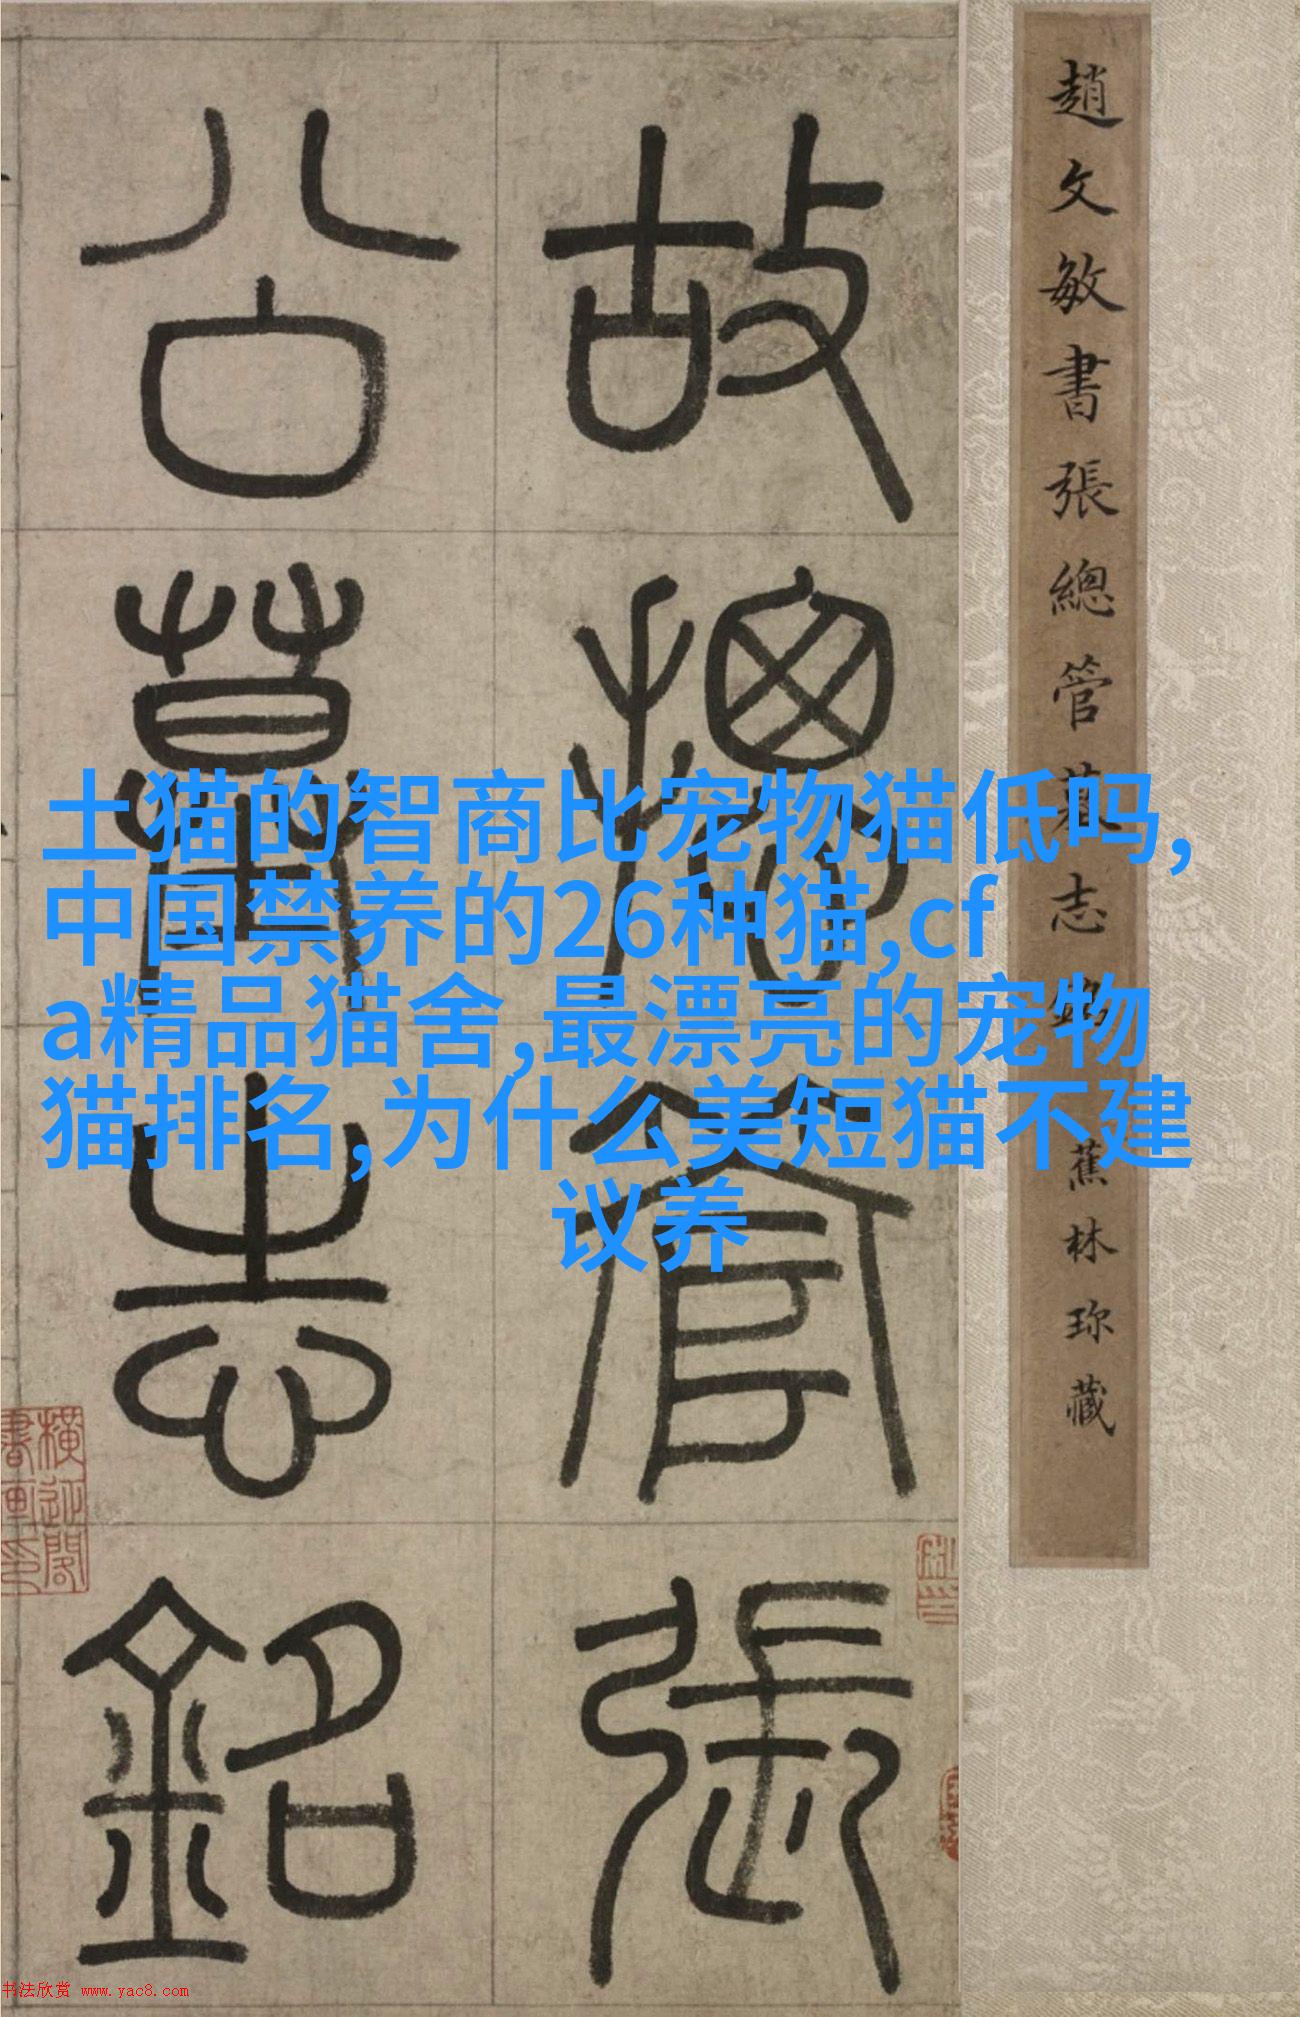 趙文敏書張總管墓志銘 蕉林珍藏
故總管張
公墓志銘
土猫的智商比宠物猫低吗,
中国禁养的26种猫,cf
a精品猫舍,最漂亮的宠物
猫排名,为什么美短猫不建
议养
书法欣赏 www.yac8.com